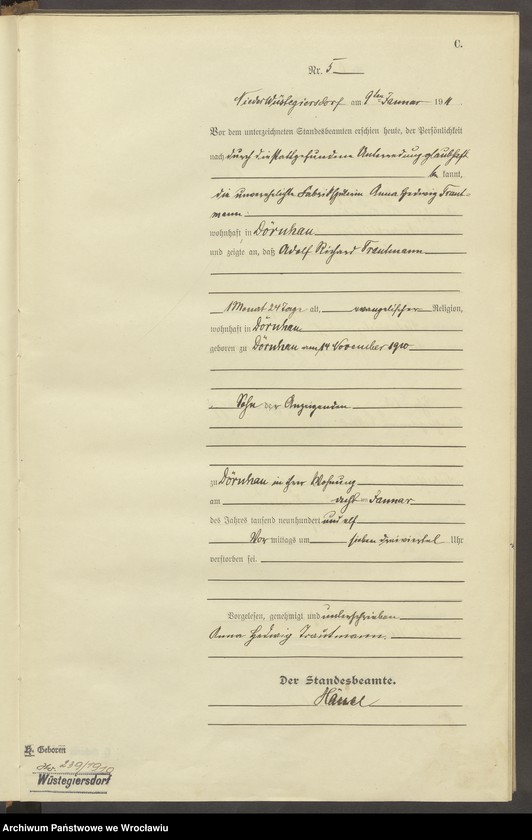 C.
Nr. 5
Niederwüstegiersdorf am 9ten Januar 1911
Vor dem unterzeichneten Standesbeamten erschien heute, der Persönlichkeit
nach durch die stattgefundene Unterredung glaubhaft
be kannt,
die unverehelichte Fabrikspulerin Anna Hedwig Traut-
mann
wohnhaft in Dörnhau
und zeigte an, daß Adolf Richard Trautmann
1 Monat 24 Tage alt, evangelischer Religion,
wohnhaft in Dörnhau
geboren zu Dörnhau am 14 November 1910
Sohn der Anzeigenden
zu Dörnhau in ihrer Wohnung
am acht ten Januar
des Jahres tausend neunhundert und elf
Vor mittags um sieben dreiviertel Uhr
verstorben sei.
Vorgelesen, genehmigt und unterschrieben
Anna Hedwig Trautmann.
Der Standesbeamte.
Hänel
H. Geboren
No. 239/1910
Wüstegiersdorf
Archiwum Państwowe we Wrocławiu